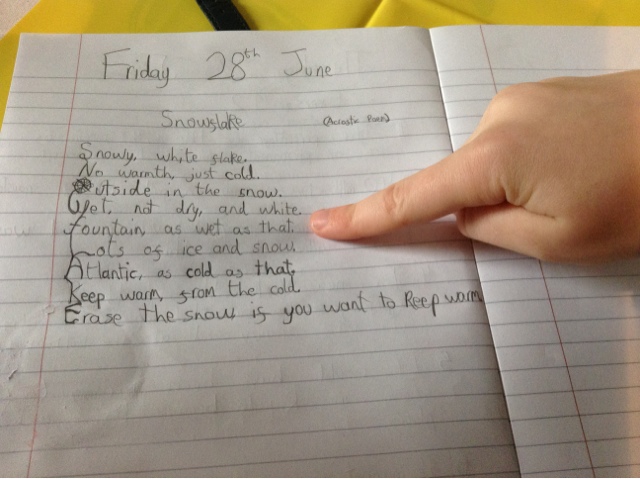 Friday 28th June
Snowflake (Acrostic Poem)
Snowy, white flake.
No warmth, just cold.
Outside in the snow.
Wet, not dry, and white.
Fountain, as wet as that.
Lots of ice and snow.
Atlantic, as cold as that.
Keep warm from the cold.
Erase the snow if you want to keep warm